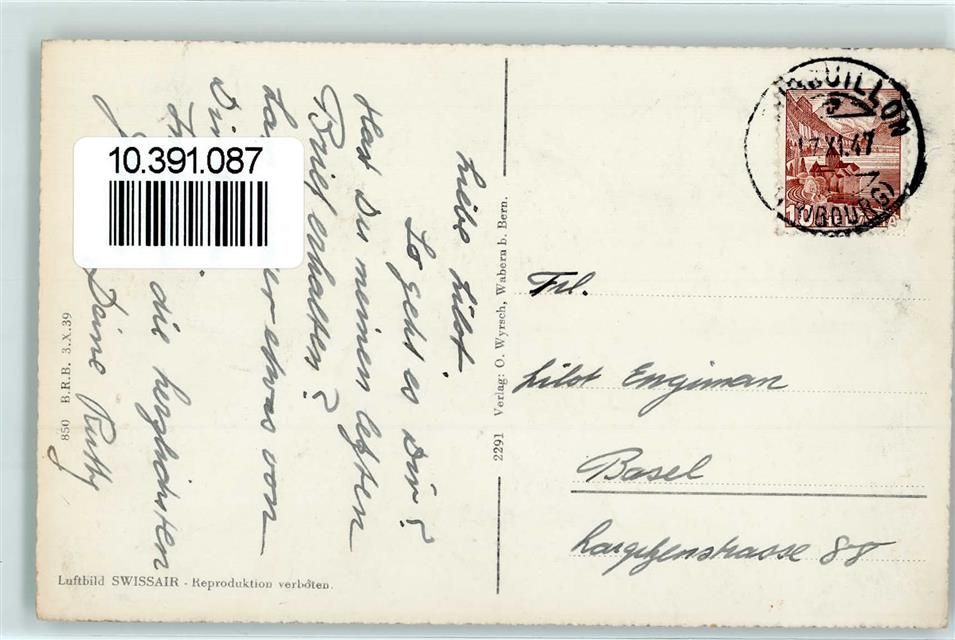 10.391.087
Liebe Lilot.
So geht es Dir?
Hast Du meinen letzten
Brief erhalten?
La er etwas von
Di
die herzlichsten
Deine Rutty
850 B.R.B. 3.X.39
Luftbild SWISSAIR - Reproduktion verboten.
2291 Verlag: O. Wyrsch, Wabern b. Bern.
17.XI.47
(FRIBOURG)
10
Frl.
Lilot Engiman
Basel
88